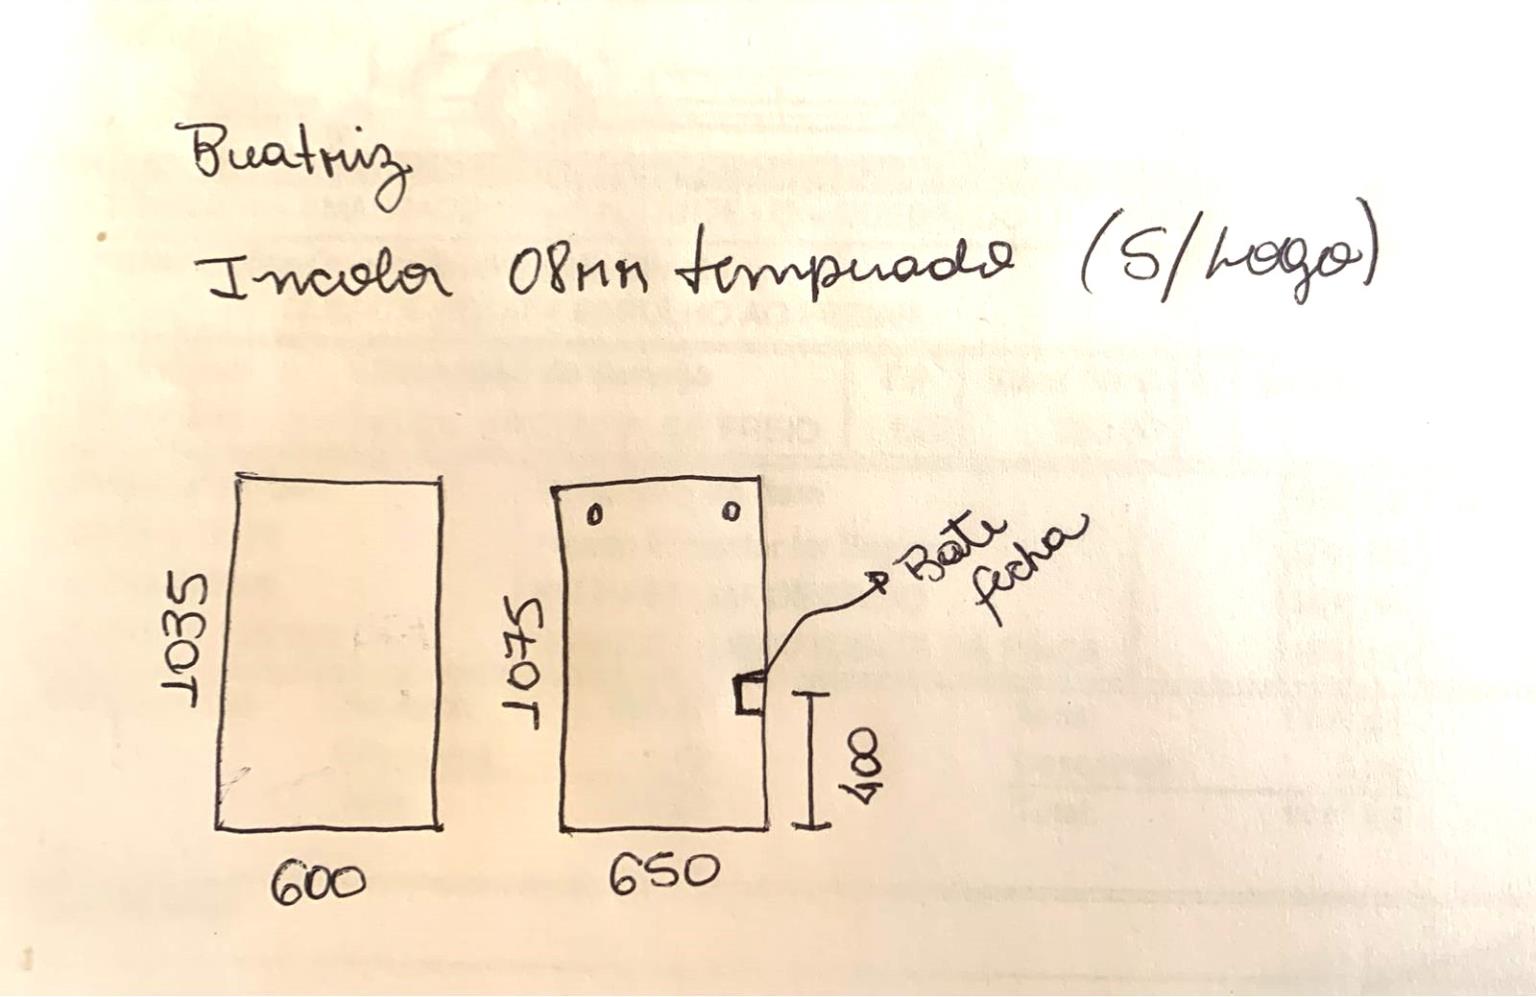 Beatriz
Incolor 08mm temperado (S/Logo)
1035
600
1075
650
Bate
fecha
400